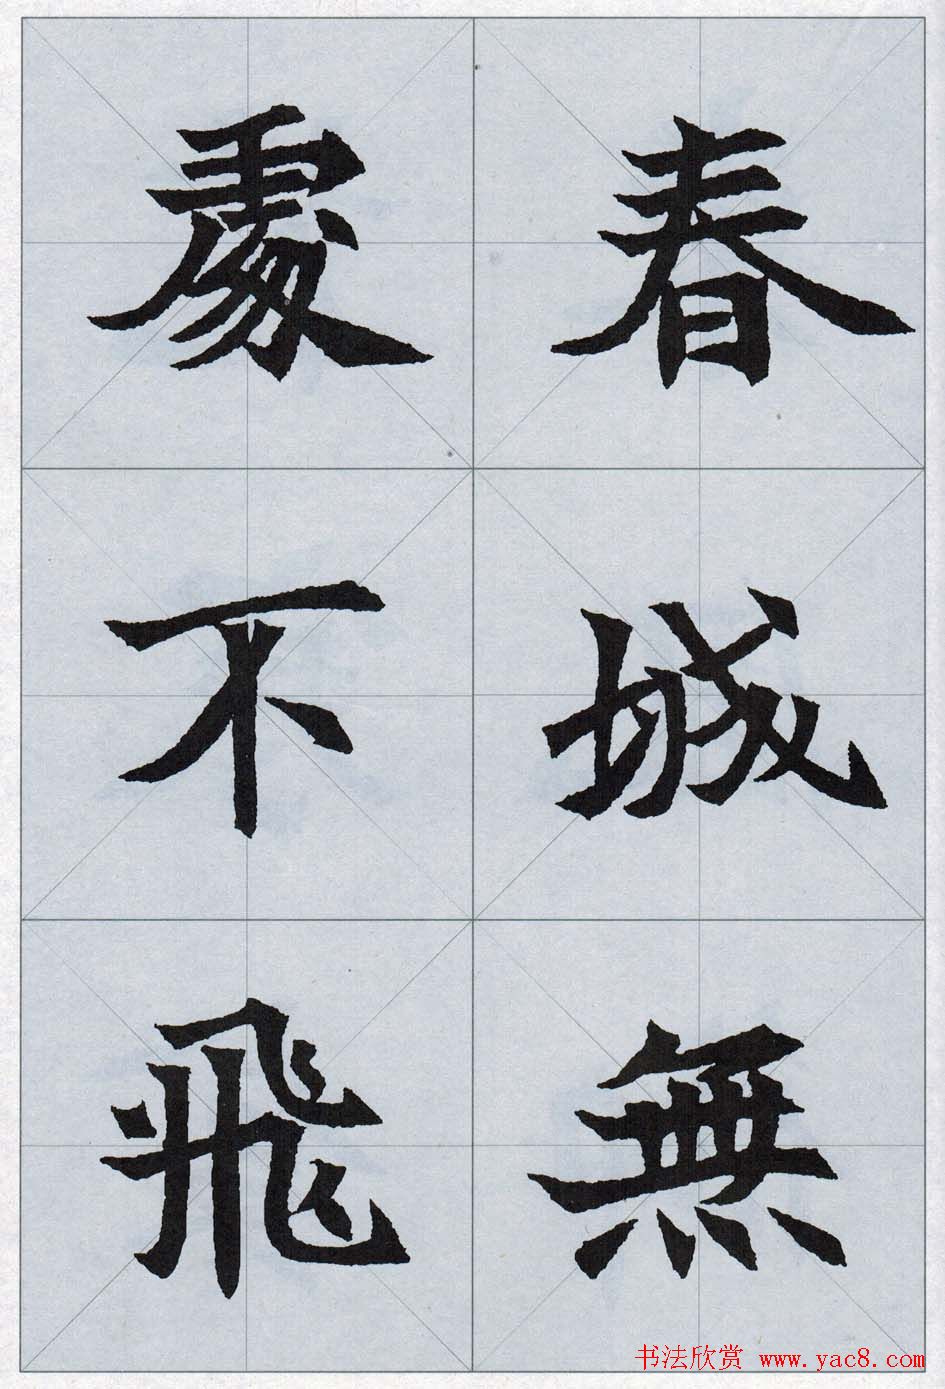 春城無
處不飛
书法欣赏 www.yac8.com